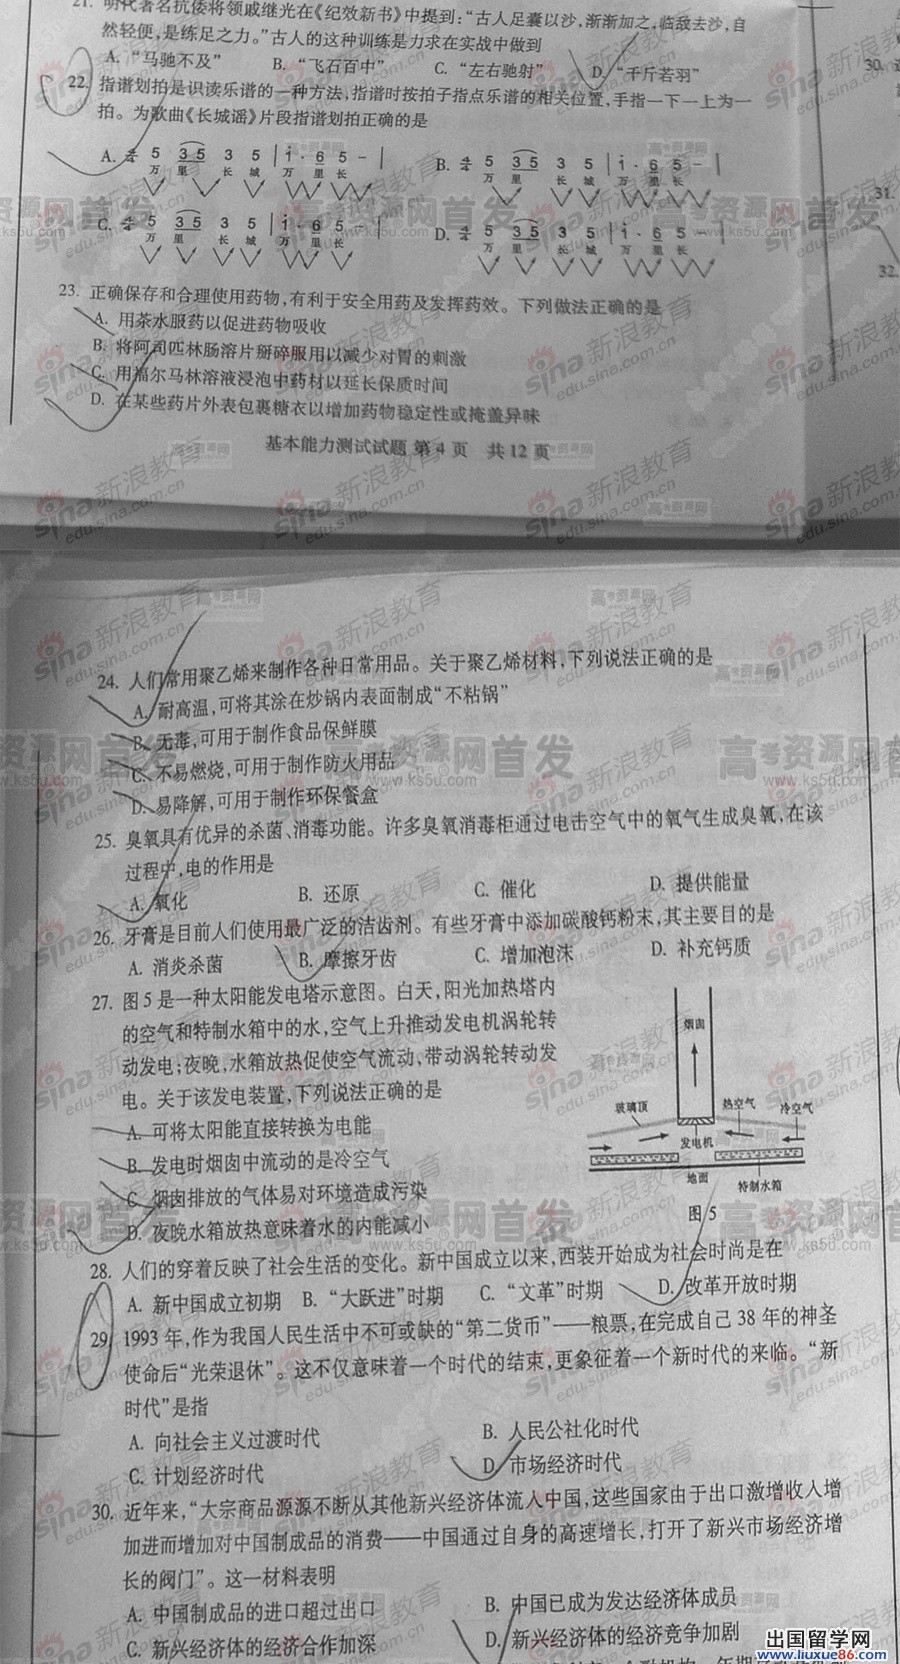 21. 明代著名抗倭将领戚继光在《纪效新书》中提到：“古人足囊以沙，渐渐加之，临敌去沙，自
然轻便，是练足之力。”古人的这种训练是力求在实战中做到
A. “马驰不及” B. “飞石百中” C. “左右驰射” D. “千斤若羽”
22. 指谱划拍是识读乐谱的一种方法，指谱时按拍子指点乐谱的相关位置，手指一下一上为一
拍。为歌曲《长城谣》片段指谱划拍正确的是
A. 5 35 3 5 | 1· 6 5 - | B. 5 35 3 5 | 1· 6 5 - |
万 里 长 城 万 里 长 万 里 长 城 万 里 长
C. 5 35 3 5 | 1· 6 5 - | D. 5 35 3 5 | 1· 6 5 - |
万 里 长 城 万 里 长 万 里 长 城 万 里 长
23. 正确保存和合理使用药物，有利于安全用药及发挥药效。下列做法正确的是
A. 用茶水服药以促进药物吸收
B. 将阿司匹林肠溶片掰碎服用以减少对胃的刺激
C. 用福尔马林溶液浸泡中药材以延长保质时间
D. 在某些药片外表包裹糖衣以增加药物稳定性或掩盖异味
基本能力测试试题 第 4 页 共 12 页
30.
31.
32.
24. 人们常用聚乙烯来制作各种日常用品。关于聚乙烯材料，下列说法正确的是
A. 耐高温，可将其涂在炒锅内表面制成“不粘锅”
B. 无毒，可用于制作食品保鲜膜
C. 不易燃烧，可用于制作防火用品
D. 易降解，可用于制作环保餐盒
25. 臭氧具有优异的杀菌、消毒功能。许多臭氧消毒柜通过电击空气中的氧气生成臭氧，在该
过程中，电的作用是
A. 氧化 B. 还原 C. 催化 D. 提供能量
26. 牙膏是目前人们使用最广泛的洁齿剂。有些牙膏中添加碳酸钙粉末，其主要目的是
A. 消炎杀菌 B. 摩擦牙齿 C. 增加泡沫 D. 补充钙质
27. 图 5 是一种太阳能发电塔示意图。白天，阳光加热塔内
的空气和特制水箱中的水，空气上升推动发电机涡轮转
动发电；夜晚，水箱放热促使空气流动，带动涡轮转动发
电。关于该发电装置，下列说法正确的是
A. 可将太阳能直接转换为电能
B. 发电时烟囱中流动的是冷空气
C. 烟囱排放的气体易对环境造成污染
D. 夜晚水箱放热意味着水的内能减小
烟囱
玻璃顶 热空气 冷空气
发电机
地面 特制水箱
图 5
28. 人们的穿着反映了社会生活的变化。新中国成立以来，西装开始成为社会时尚是在
A. 新中国成立初期 B. “大跃进”时期 C. “文革”时期 D. 改革开放时期
29. 1993 年，作为我国人民生活中不可或缺的“第二货币”——粮票，在完成自己 38 年的神圣
使命后“光荣退休”。这不仅意味着一个时代的结束，更象征着一个新时代的来临。“新
时代”是指
A. 向社会主义过渡时代 B. 人民公社化时代
C. 计划经济时代 D. 市场经济时代
30. 近年来，“大宗商品源源不断从其他新兴经济体流入中国，这些国家由于出口激增收入增
加进而增加对中国制成品的消费——中国通过自身的高速增长，打开了新兴市场经济增
长的阀门”。这一材料表明
A. 中国制成品的进口超过出口 B. 中国已成为发达经济体成员
C. 新兴经济体的经济合作加深 D. 新兴经济体的经济竞争加剧
高考资源网首发
www.ks5u.com
sina新浪教育
edu.sina.com.cn
出国留学网
www.liuxue86.com